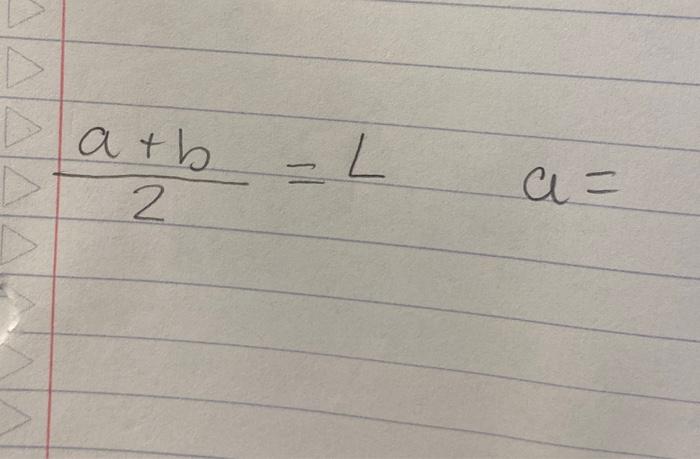 a + b
2
= L
a =